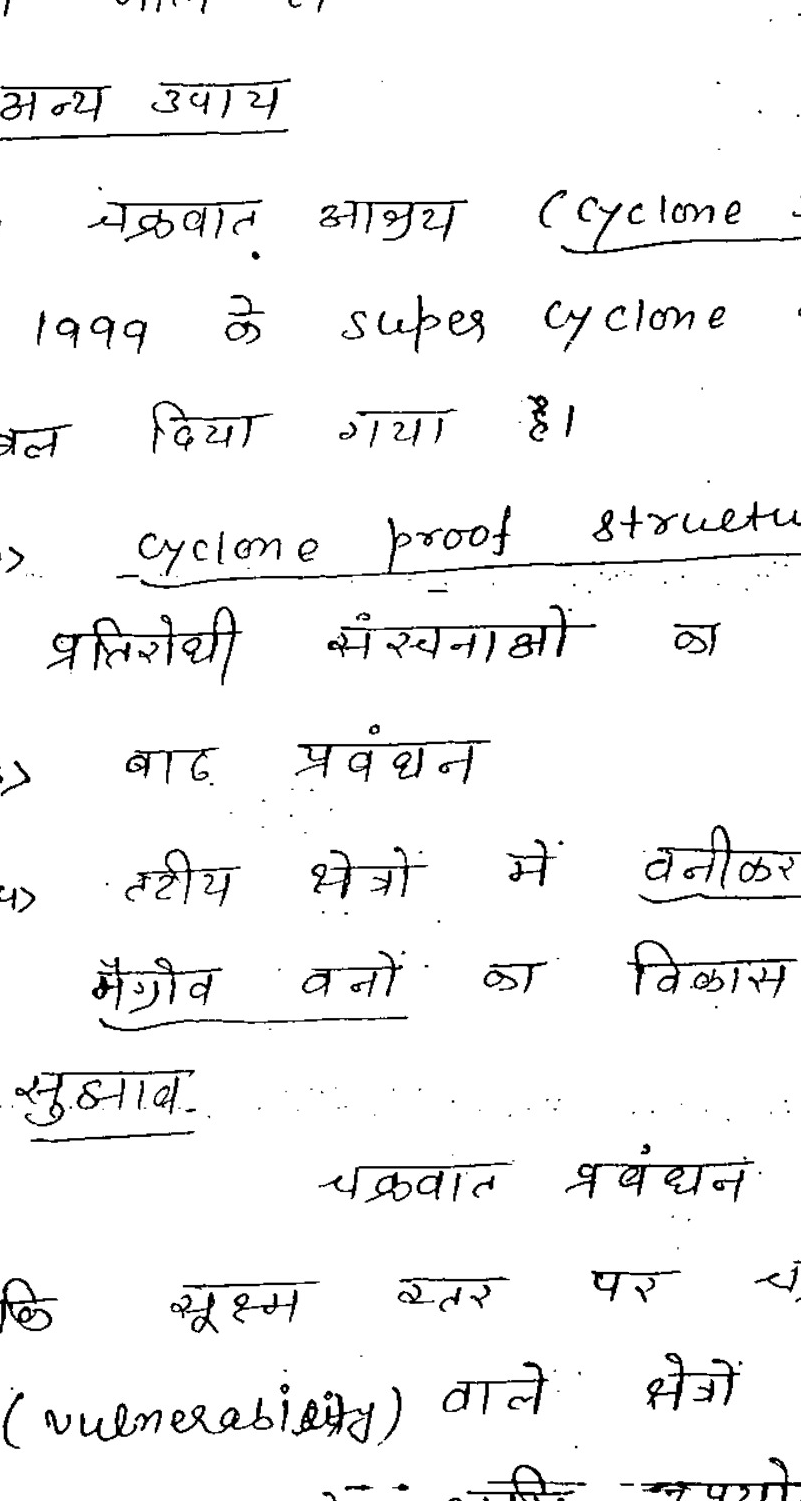 अन्य उपाय
चक्रवात आश्रय (cyclone
1999 के super cyclone
बल दिया गया है।
cyclone proof structu
प्रतिरोधी संरचनाओं का
बाढ़ प्रबंधन
तटीय क्षेत्रों में वनीकर
मैंग्रोव वनों का विकास
सुझाव
चक्रवात प्रबंधन
कि सूक्ष्म स्तर पर
(vulnerability) वाले क्षेत्रों